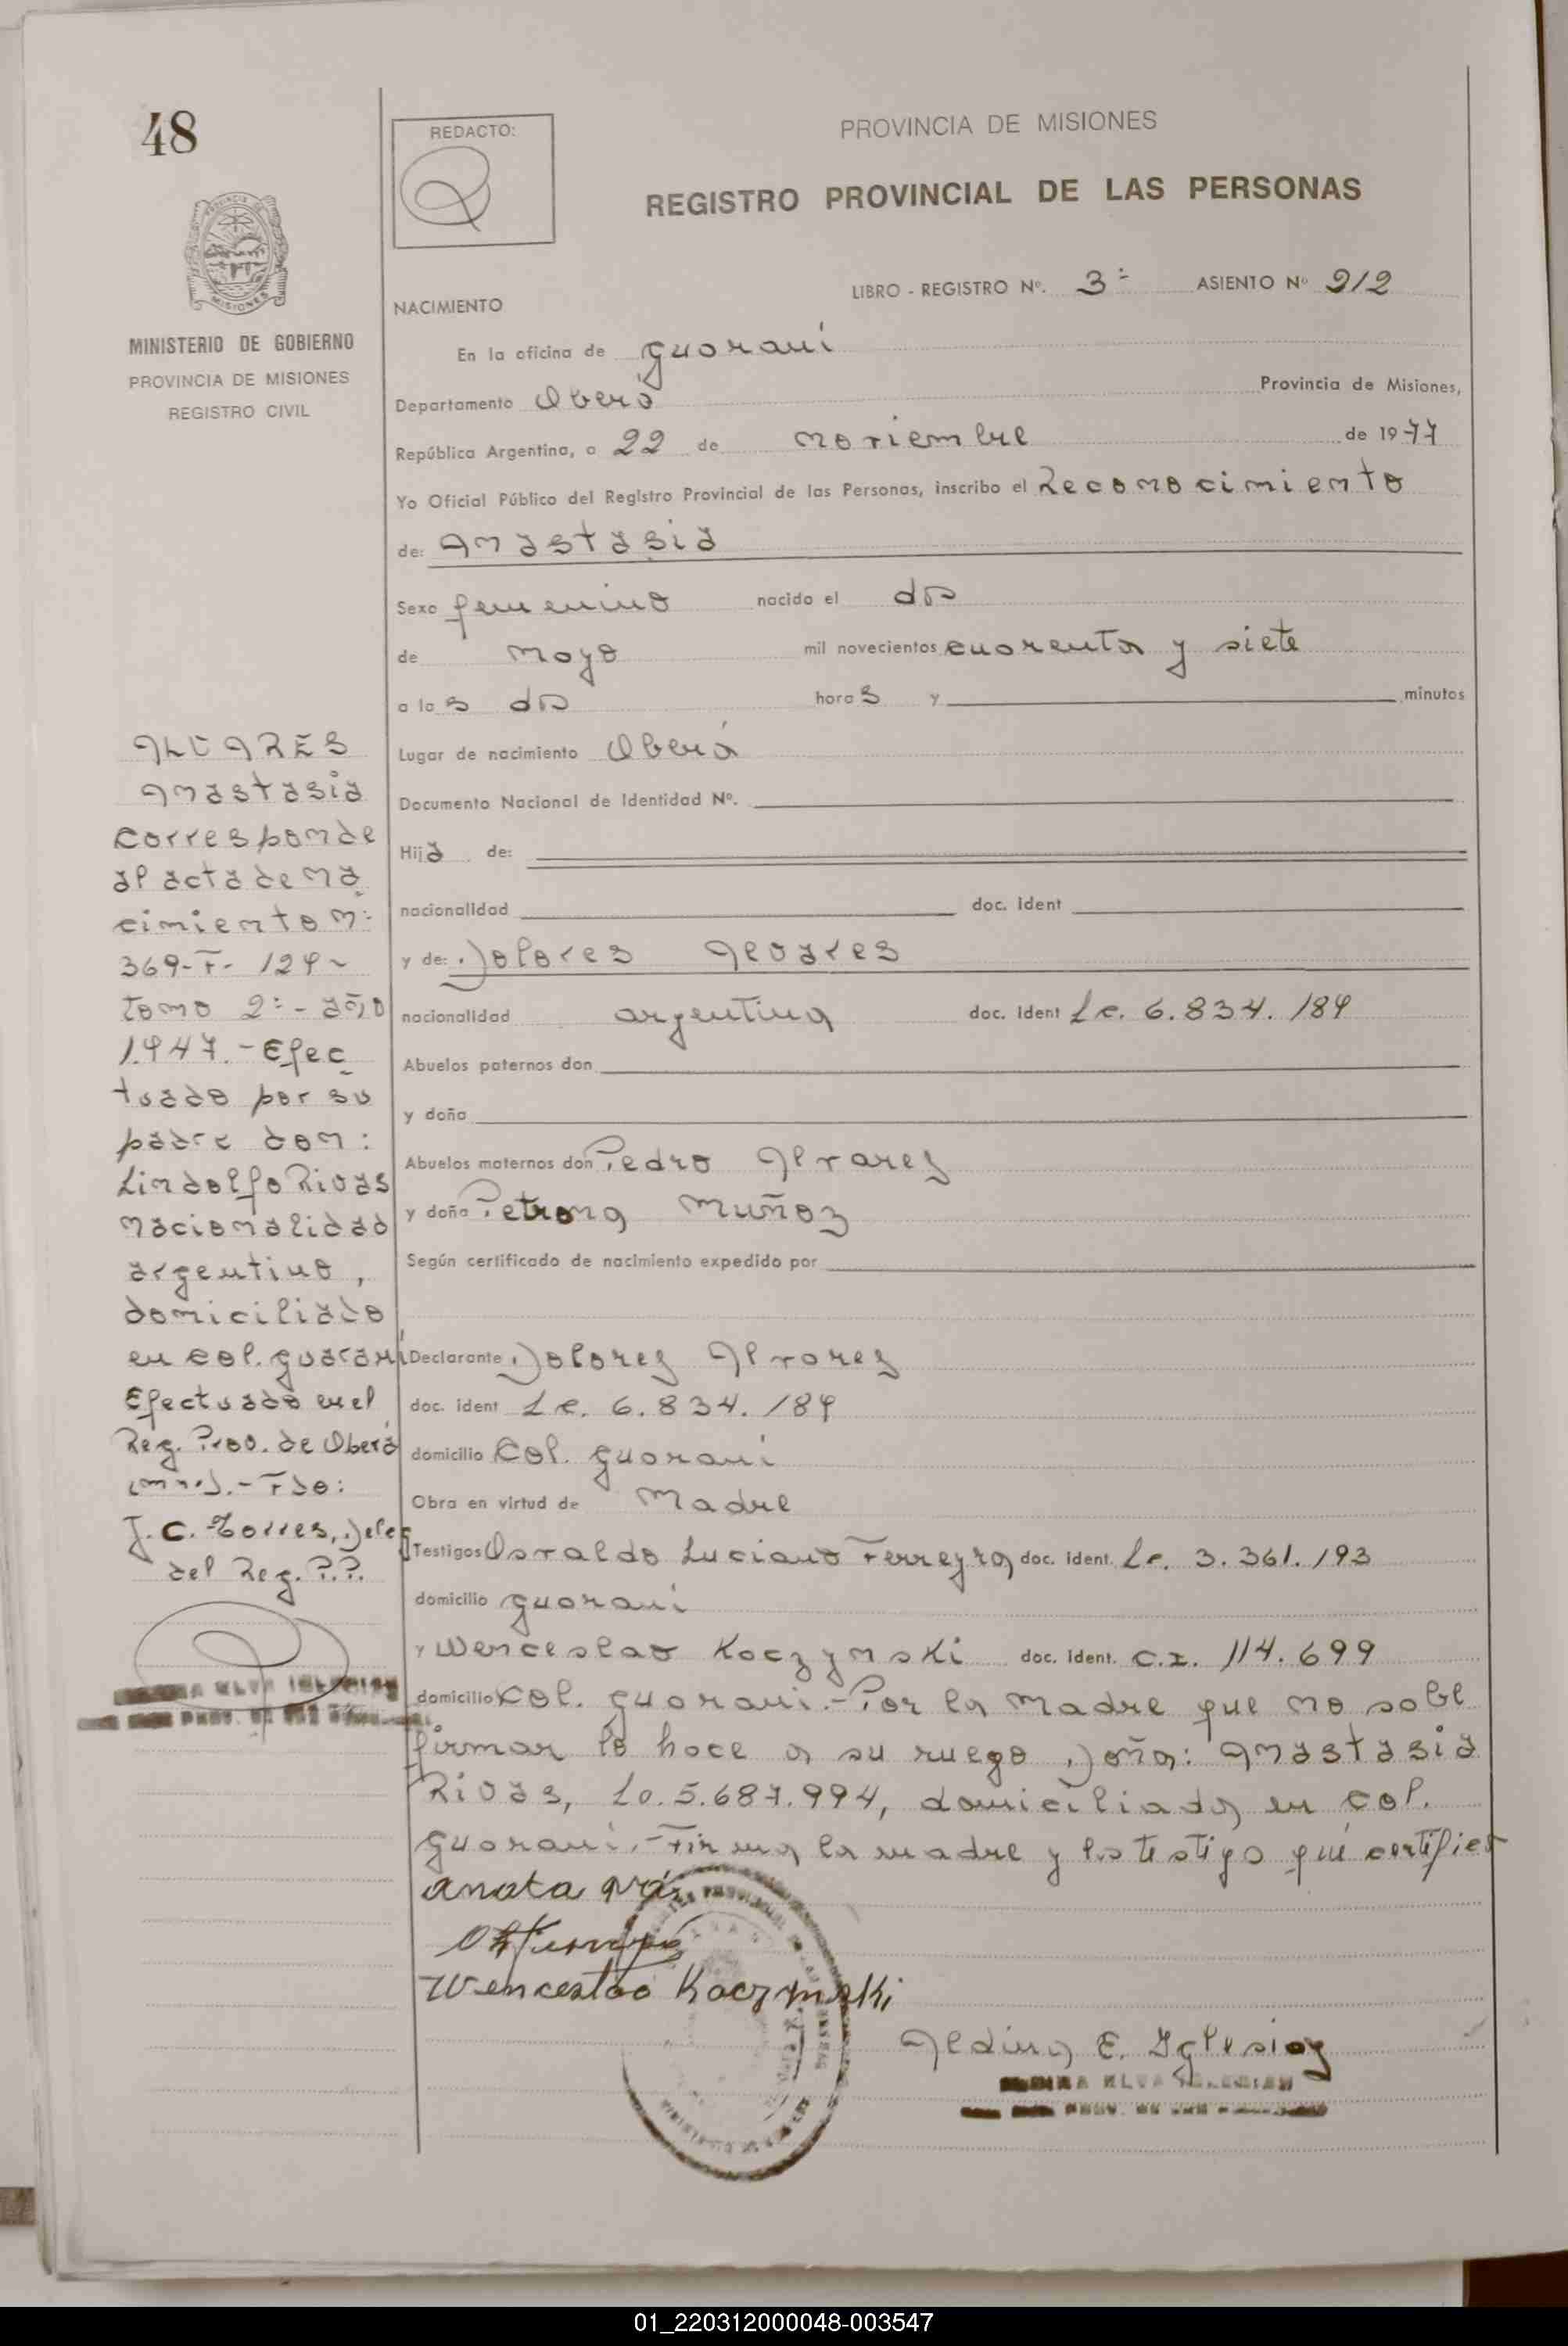 48
REDACTO:
PROVINCIA DE MISIONES
REGISTRO PROVINCIAL DE LAS PERSONAS
LIBRO - REGISTRO Nº. 3= ASIENTO Nº 212
NACIMIENTO
MINISTERIO DE GOBIERNO
PROVINCIA DE MISIONES
REGISTRO CIVIL
En la oficina de Guaraní
Departamento Oberá Provincia de Misiones,
República Argentina, a 22 de noviembre de 1977
Yo Oficial Público del Registro Provincial de las Personas, inscribo el Reconocimiento
de: Anastasia
Sexo femenino nacido el dos
de mayo mil novecientos cuarenta y siete
a las dos horas y minutos
Lugar de nacimiento Oberá
Documento Nacional de Identidad Nº.
Hija de:
nacionalidad doc. ident
y de: Dolores Alvares
nacionalidad argentina doc. ident Lc. 6.834.189
Abuelos paternos don
y doña
Abuelos maternos don Pedro Alvarez
y doña Petrona Muñoz
Según certificado de nacimiento expedido por
Declarante Dolores Alvarez
doc. ident Lc. 6.834.189
domicilio Col. Guaraní
Obra en virtud de Madre
Testigos Osvaldo Luciano Ferreyra doc. ident. Le. 3.361.193
domicilio Guaraní
y Wenceslao Koczynski doc. ident. C.I. 114.699
domicilio Col. Guaraní.- Por la madre que no sabe
firmar lo hace a su ruego Doña: Anastasia
Rivas, Lc. 5.687.994, domiciliada en Col.
Guaraní.- Firma la madre y los testigo que certifico
Wenceslao Koczynski
Aldina E. Iglesias
ALVARES
Anastasia
Corresponde
al acta de na
cimiento n:
369-F- 129-
Tomo 2:- año
1.947.- Efec
tuado por su
padre don:
Lindolfo Rivas
nacionalidad
argentino,
domiciliado
en Col. Guaraní
Efectuado en el
Reg. Prov. de Oberá
Fdo:
J. C. Torres, Deleg
del Reg. P.P.
01_220312000048-003547